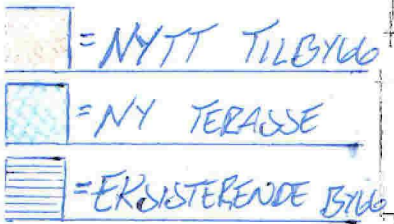 = NYTT TILBYGG
= NY TERASSE
= EKSISTERENDE BYGG